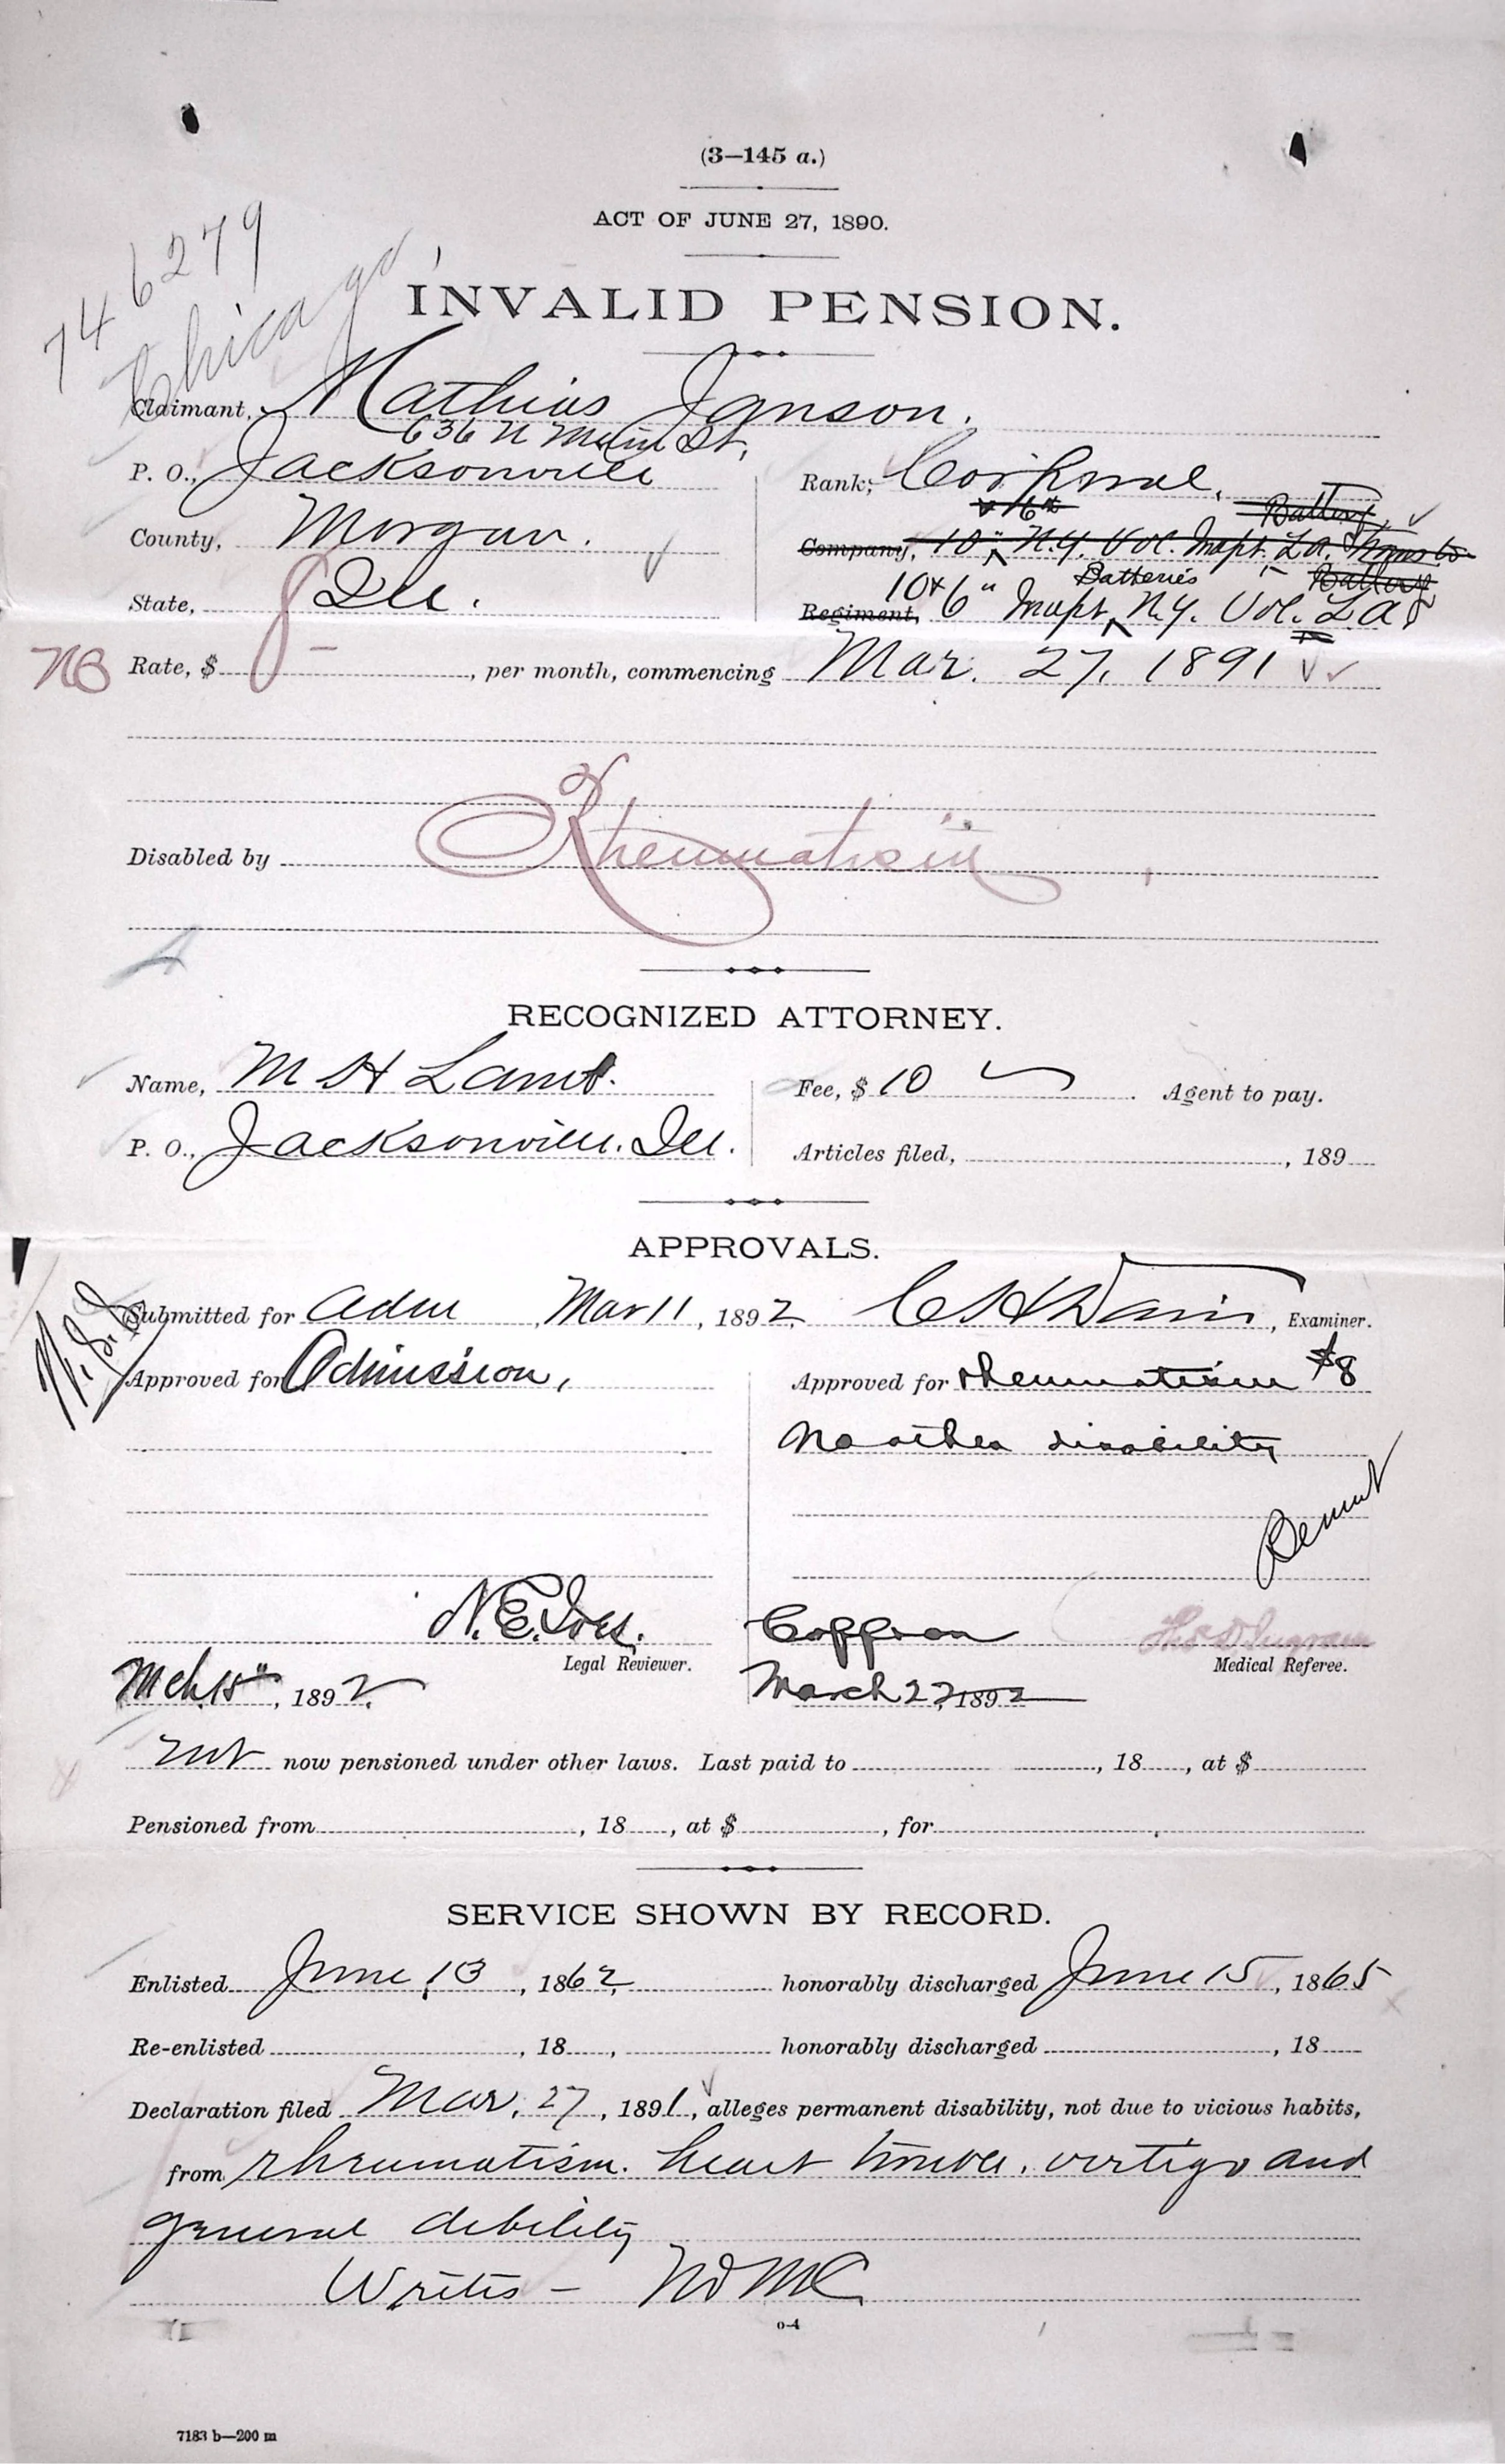 (3—145 a.)
ACT OF JUNE 27, 1890.
746279
Chicago
INVALID PENSION.
Claimant, Mathias Janson.
636 N Main St,
P. O., Jacksonville
Rank, Corporal,
v 6" Battery,
County, Morgan.
Company, 10" N.Y. Vol. Indpt. L.A.
Batteries Battery
State, Ill.
Regiment, 10 & 6" Indpt. N.Y. Vol. L.A.
NB Rate, $ 8 —, per month, commencing Mar. 27, 1891
Disabled by Rheumatism
RECOGNIZED ATTORNEY.
Name, M H Lamb.
Fee, $ 10 Agent to pay.
P. O., Jacksonville. Ill.
Articles filed, , 189
APPROVALS.
Submitted for Adm Mar 11, 1892, C H Davis, Examiner.
Approved for Admission,
Approved for rheumatism $8
No other disability
N. E. Ives.
Legal Reviewer.
Medical Referee.
Mch 15", 1892.
March 22, 1892
not now pensioned under other laws. Last paid to , 18 , at $
Pensioned from , 18 , at $ , for
SERVICE SHOWN BY RECORD.
Enlisted June 13, 1862, honorably discharged June 15, 1865
Re-enlisted , 18 , honorably discharged , 18
Declaration filed Mar. 27, 1891, alleges permanent disability, not due to vicious habits,
from rheumatism. heart trouble, vertigo and
general debility
Writes —
o-4
7183 b—200 m